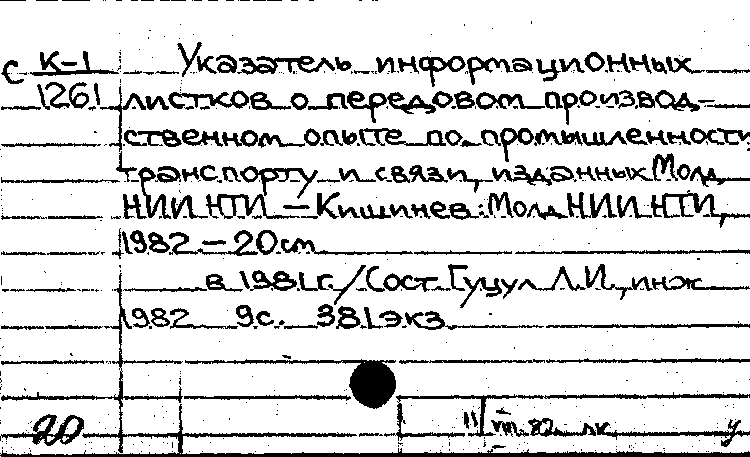 С К-1 Указатель информационных
1261 листков о передовом производ-
ственном опыте по промышленности
транспорту и связи, изданных Молд
НИИ НТИ. — Кишинев: Молд НИИ НТИ,
1982 — 20 см
в 1981 г. / Сост Гуцул Л.И., инж
1982 9с. 381 экз.
20 11/VIII.82 лк у